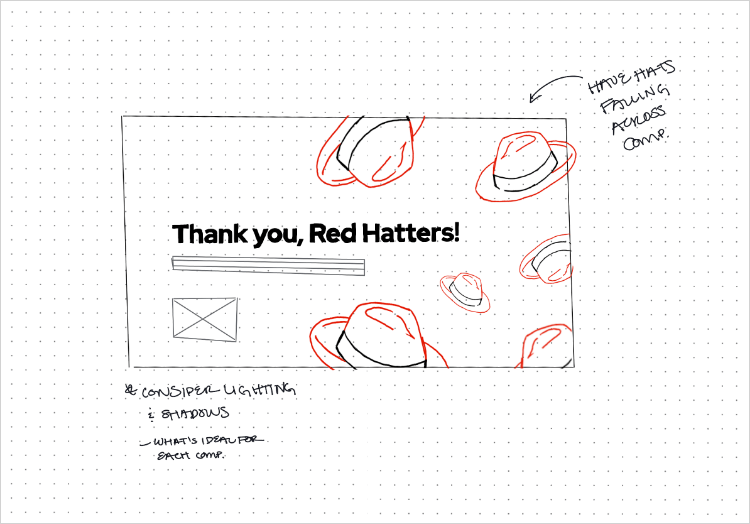 HAVE HATS
FALLING
ACROSS
COMP.
Thank you, Red Hatters!
* CONSIDER LIGHTING
& SHADOWS
– WHAT'S IDEAL FOR
EACH COMP.